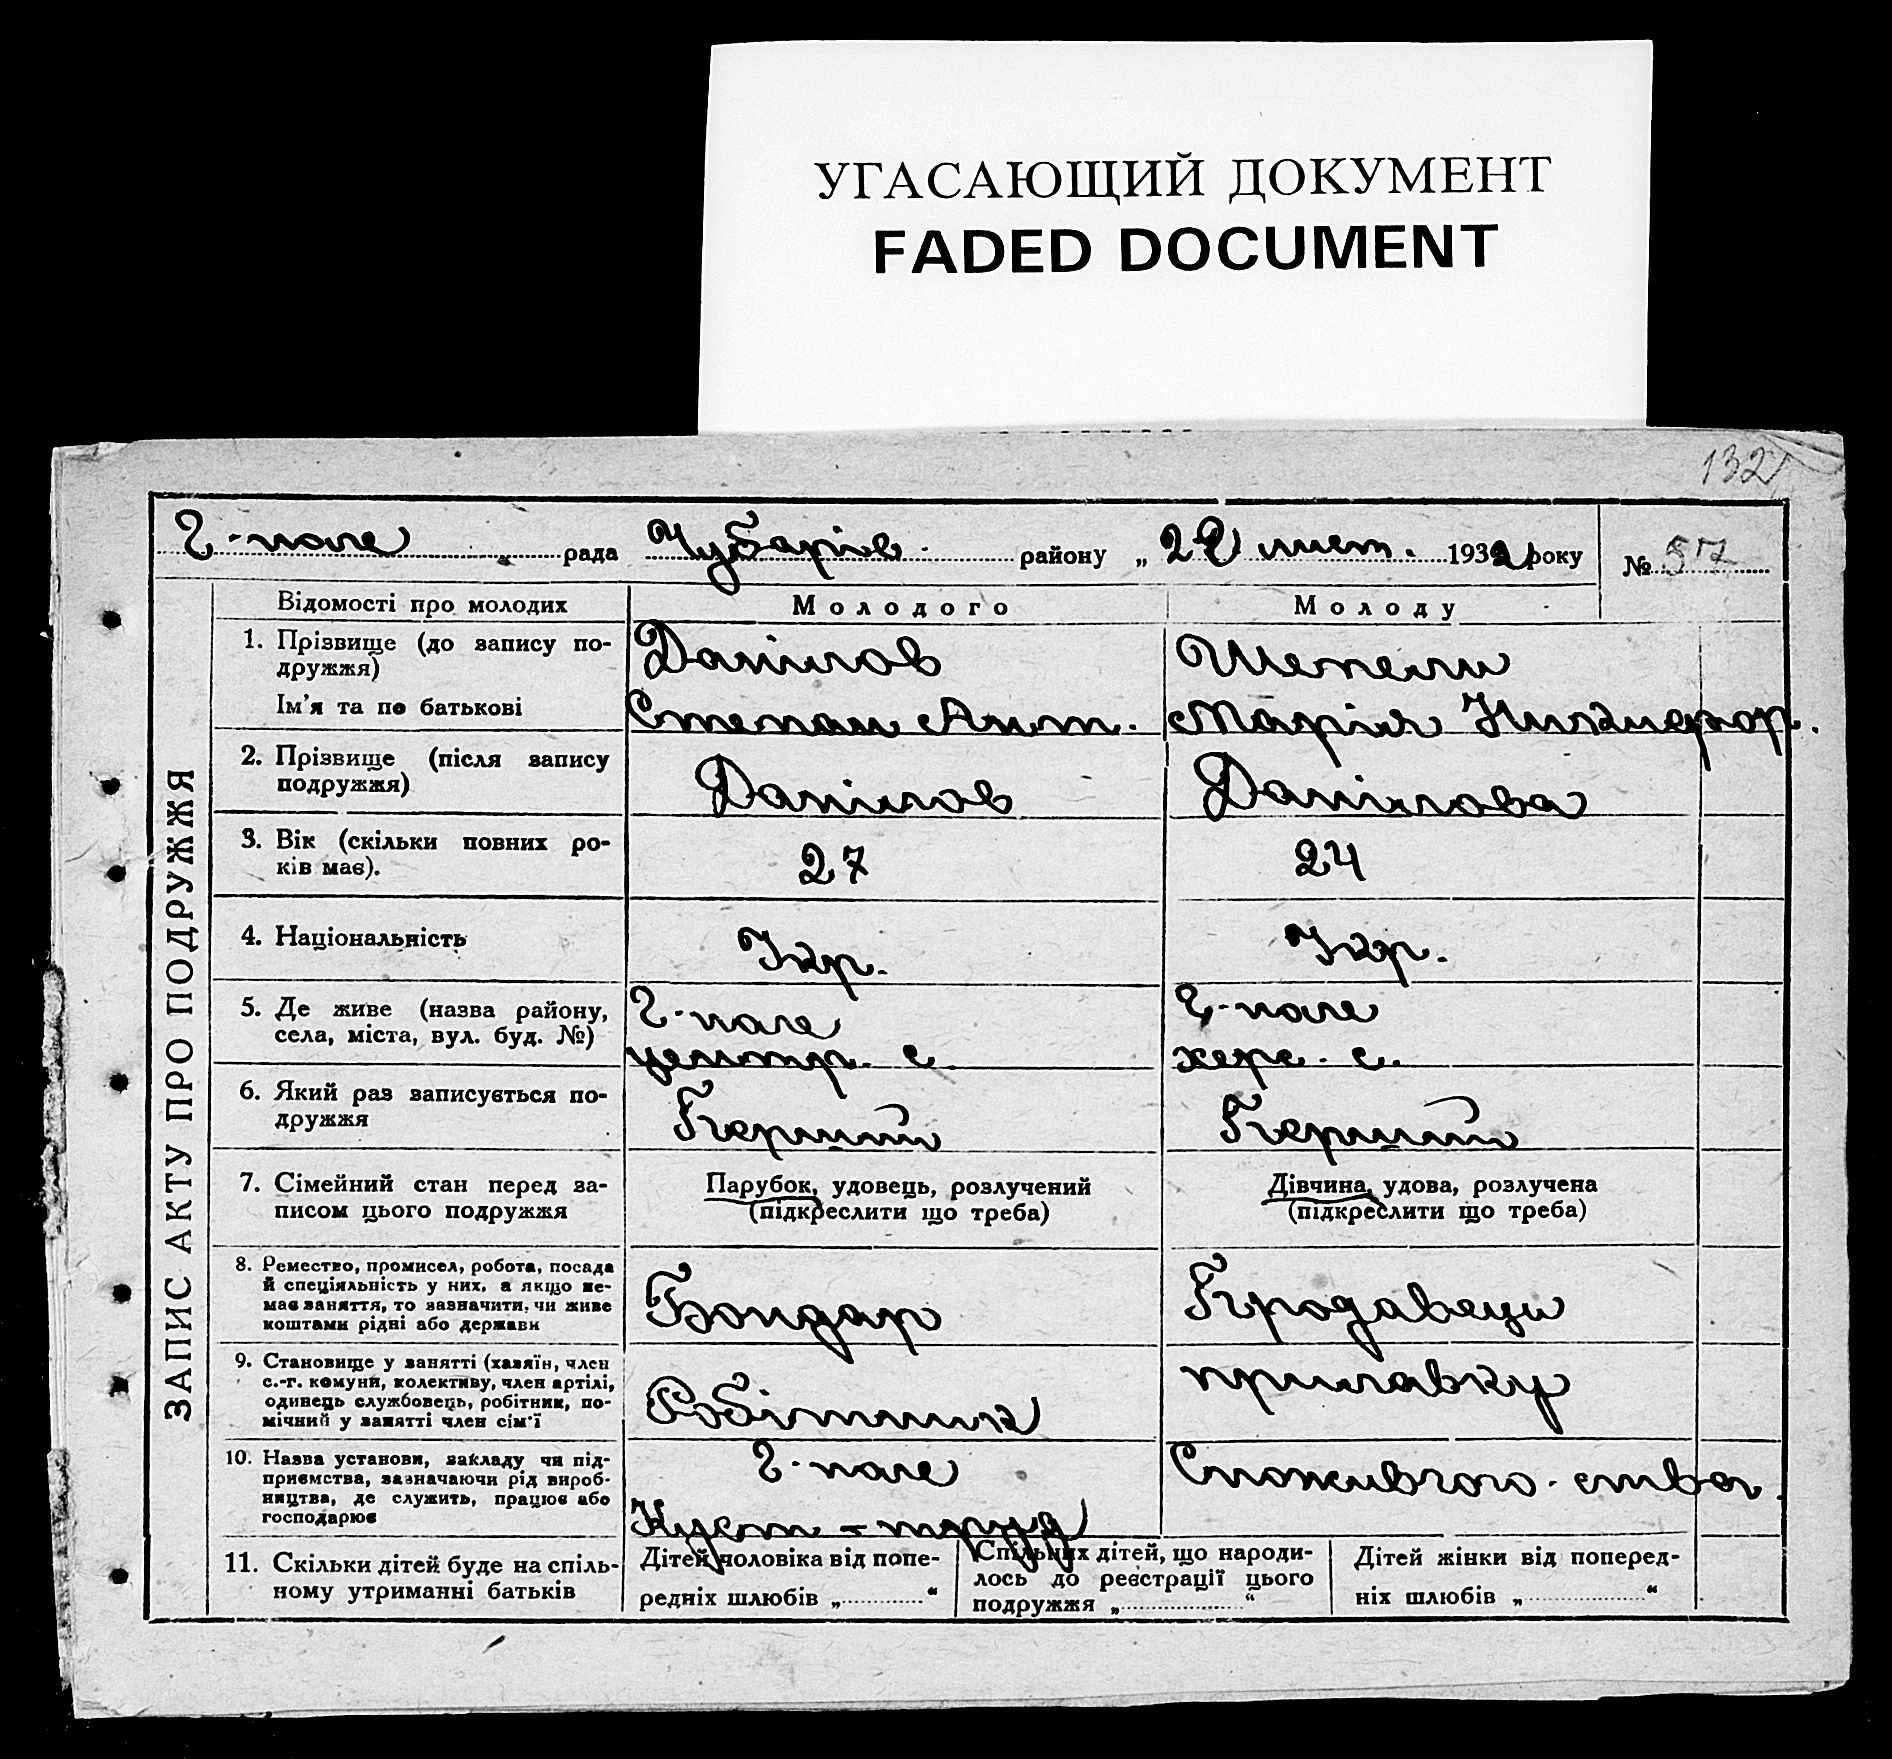 УГАСАЮЩИЙ ДОКУМЕНТ
FADED DOCUMENT
132
Г-поле рада Чубарів. району „ 29 лист. 1932 року № 57
ЗАПИС АКТУ ПРО ПОДРУЖЖЯ
Відомості про молодих Молодого Молоду
1. Прізвище (до запису по-
дружжя)
Данілов Шепели
Ім'я та по батькові
Степан Ант. Марія Никифор.
2. Прізвище (після запису
подружжя)
Данілов Данілова
3. Вік (скільки повних ро-
ків має).
27 24
4. Національність
Укр. Укр.
5. Де живе (назва району,
села, міста, вул. буд. №)
Г-поле Г-поле
центр. с. херс. с.
6. Який раз записується по-
дружжя
Перший Перший
7. Сімейний стан перед за-
писом цього подружжя
Парубок, удовець, розлучений
(підкреслити що треба)
Дівчина, удова, розлучена
(підкреслити що треба)
8. Ремество, промисел, робота, посада
й спеціяльність у них, а якщо не-
має заняття, то зазначити, чи живе
коштами рідні або держави
Бондар Продавець
9. Становище у занятті (хазяїн, член
с.-г. комуни, колективу, член артілі,
одинець службовець, робітник, по-
мічний у занятті член сім'ї
Робітник прилавку
10. Назва установи, закладу чи під-
приємства, зазначаючи рід вироб-
ництва, де служить, працює або
господарює
Г-поле
Куст-труд
Споживчого-ства.
11. Скільки дітей буде на спіль-
ному утриманні батьків
Дітей чоловіка від попе-
редніх шлюбів „ “
Спільних дітей, що народи-
лось до реєстрації цього
подружжя „ “
Дітей жінки від поперед-
ніх шлюбів „ “